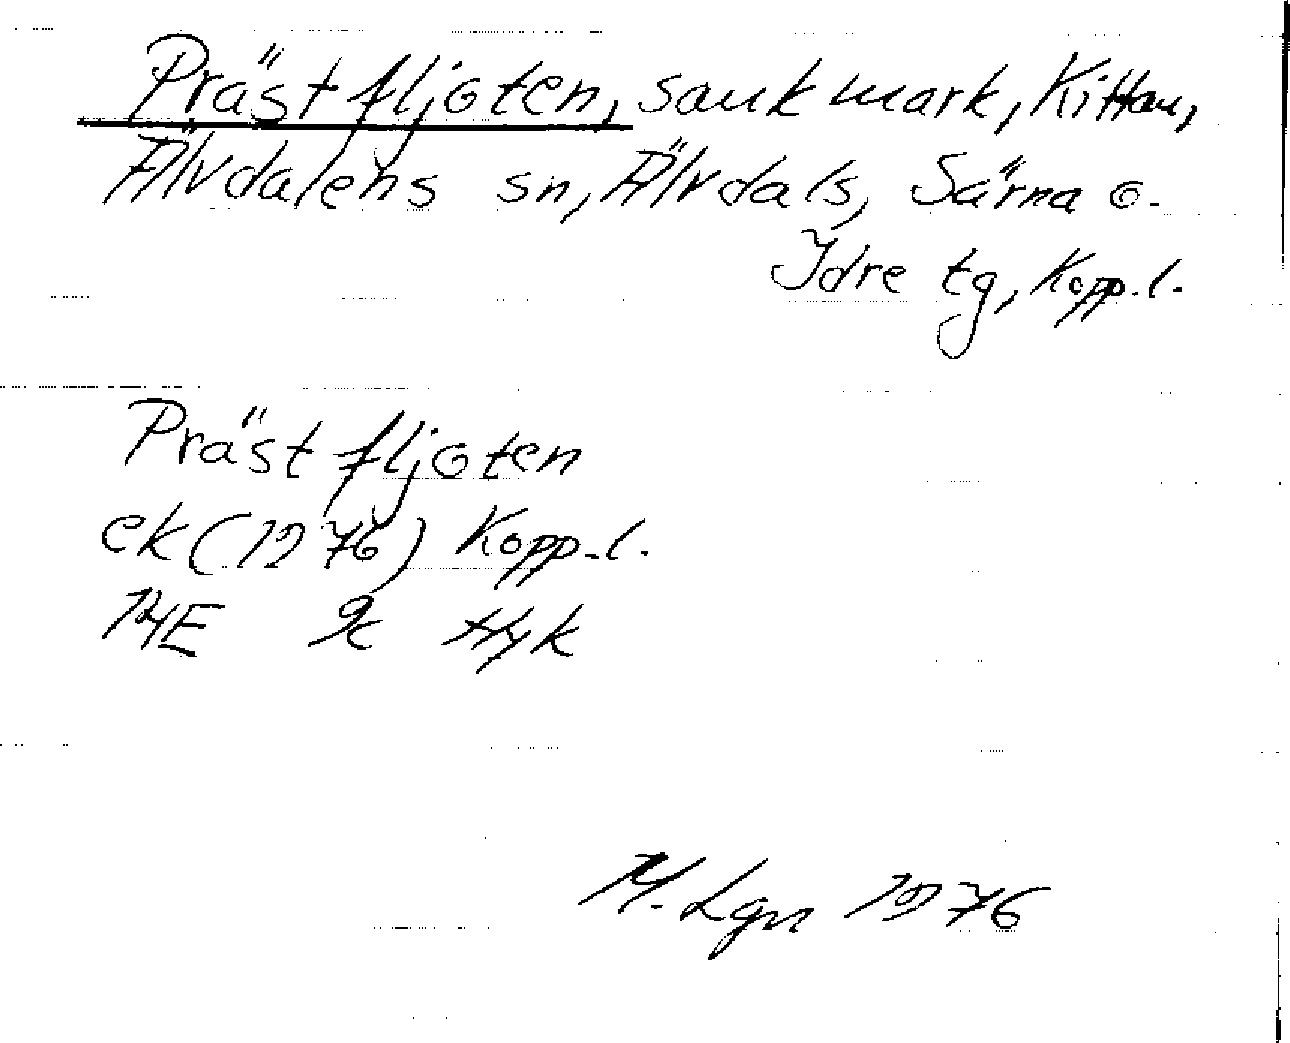 Prästfljoten, sank mark, Kittan,
Älvdalens sn, Älvdals, Särna o.
Idre tg, Kopp.l.
Prästfljoten
ek (1976) Kopp.l.
14E 9c Hyk
M. Lgn 1976